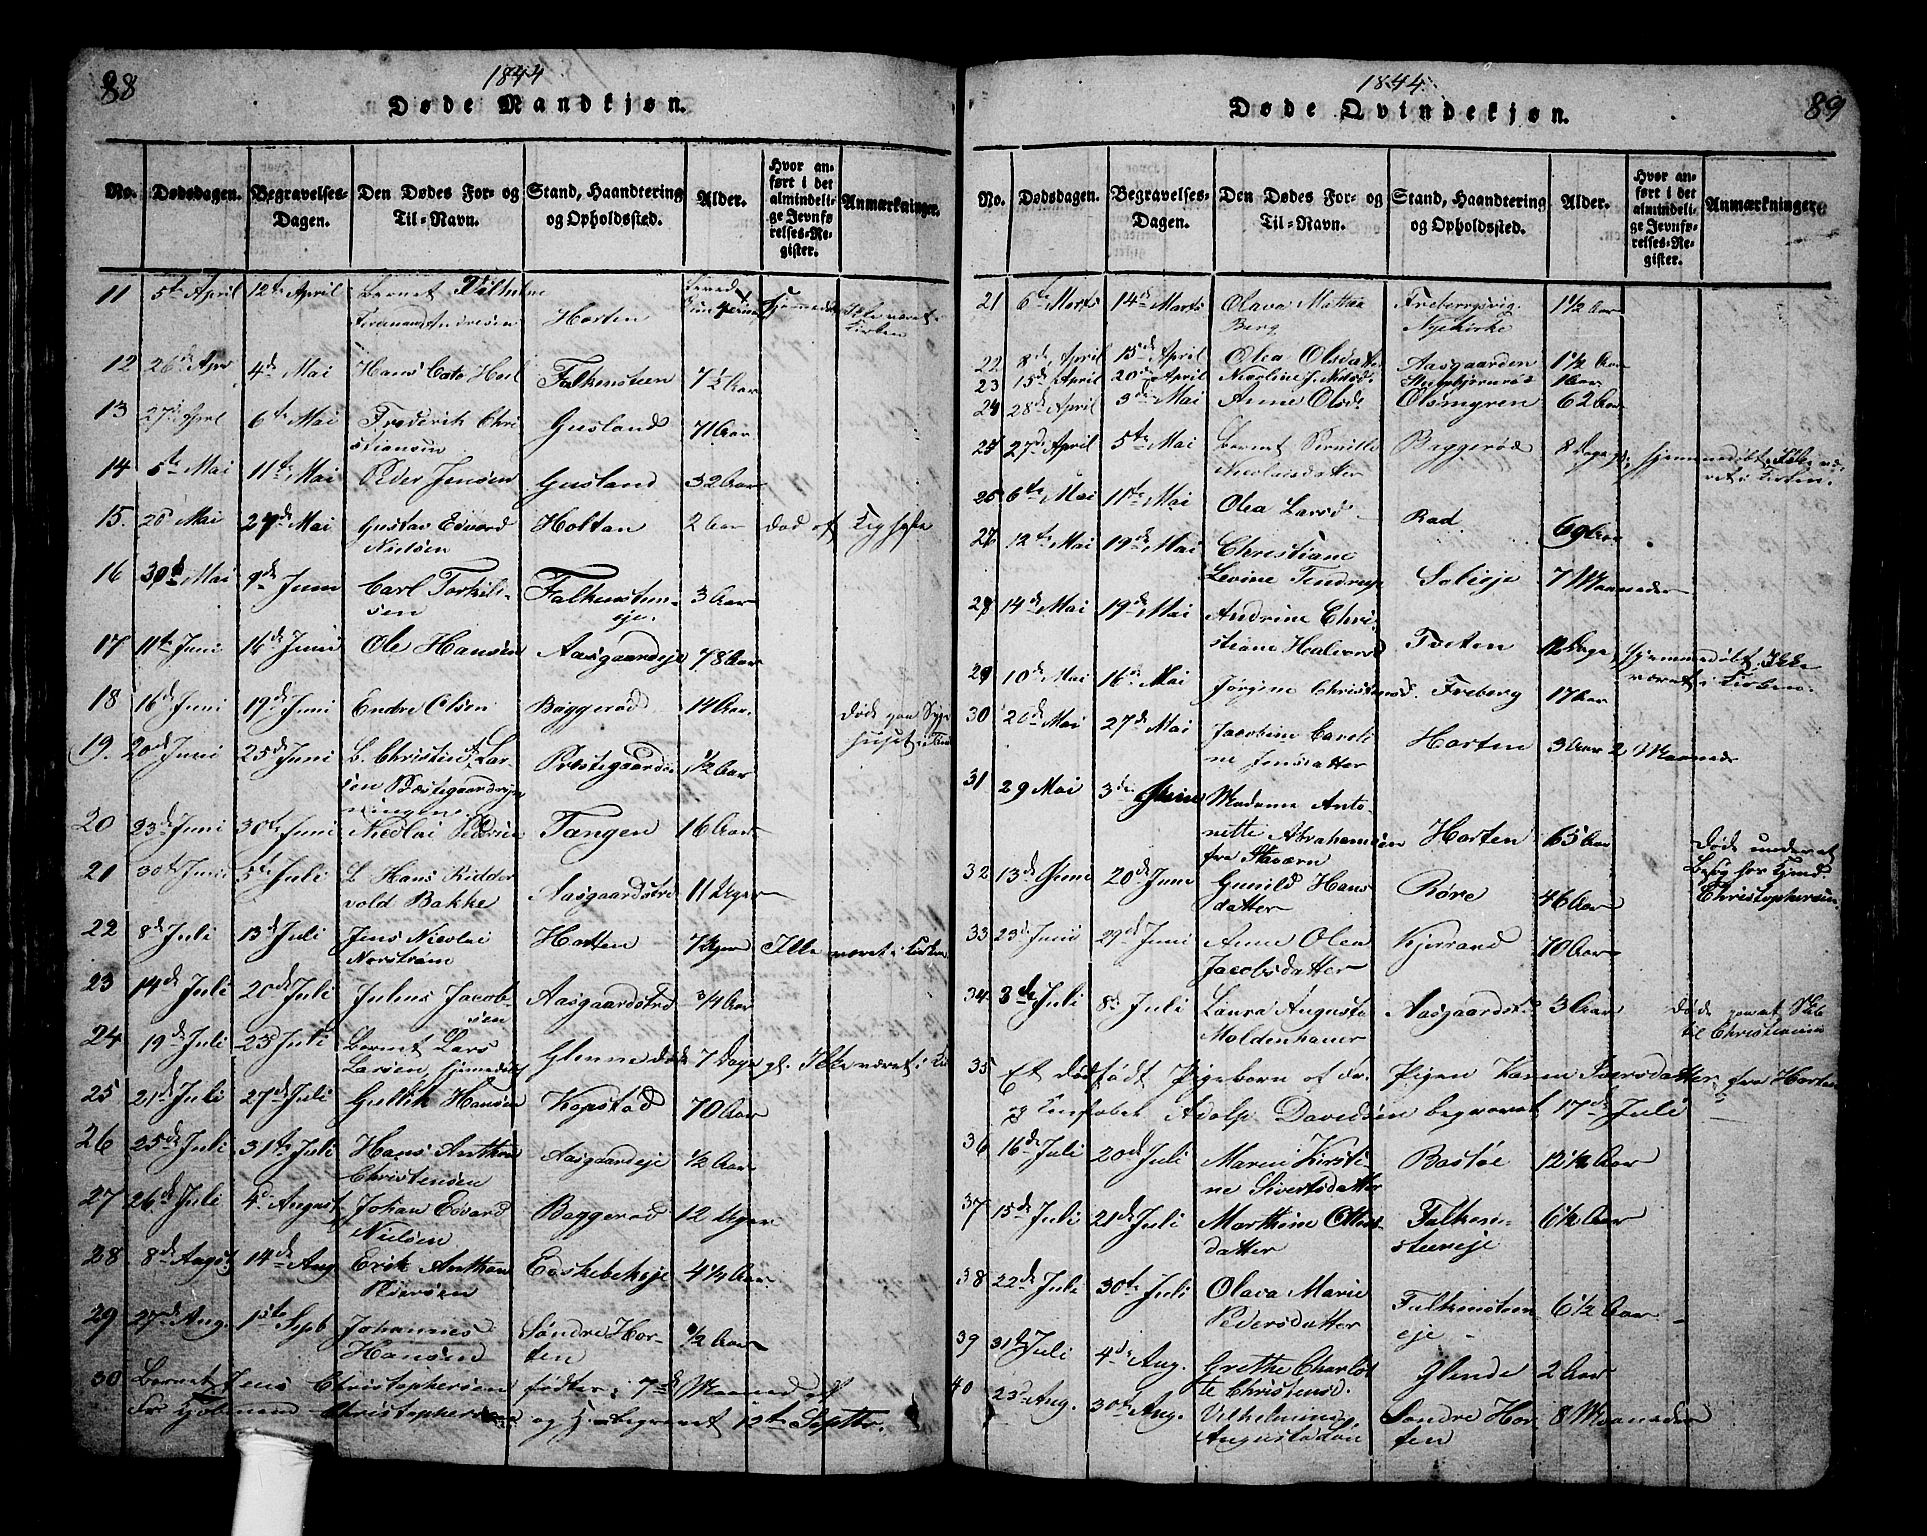 88
1844
Døde Mandkjøn.
No. Dødsdagen. Begravelses-Dagen. Den Dødes For- og Til-Navn. Stand, Haandtering og Opholdssted. Alder. Hvor anført i det almindelige Jevnførelses-Register. Anmærkninger.
11 5te April 12te April Barnet Vilhelm
Ferdinand Andresen Horten
12 26de Apr 4de Mai Hans Cato Holl Falkensteen 7½ Aar
13 27de April 6te Mai Frederik Chri
stiansen Gusland 71 Aar
14 5te Mai 11te Mai Peder Jensen Gusland 32 Aar
15. 20 Mai 27de Mai Gustav Edvard Holtan 2 Aar død af
Nielsen
16 30te Mai 9de Juni Carl Torkils-
sen Falkensteen-
eje. 3 Aar
17 11te Juni 16de Juni Ole Hansen Aasgaardeje 78 Aar
18 16de Juni 19de Juni Endre Olsen Baggerød 14 Aar. Døde paa Syge
huset
19. 20de Juni 25de Juni B. Christen A. Lar
sen Præstegaardsyn
ningen Præstegaarden ½ Aar
20 23de Juni 30te Juni Nicolai Pedersen Tangen 16 Aar
21 30te Juni 5te Juli B Hans Ridder
vold Bakke Aasgaardstrd 11 Uger
22 8de Juli 13de Juli Jens Nicolai Horten 7 Uger Ikke været i Kirken
Norstrøm
23 14de Juli 20de Juli Julius Jacob-
sen Aasgaardstrd ¾ Aar
24 19de Juli 23de Juli Barnet Lars
Larsen, hjemmedøbt Glenne døde 7 Dage gl. Ikke været i Kir
25 21de Juli 27de Juli Gullik Hansen Kopstad 70 Aar
26 25de Juli 31te Juli Hans Anthon
Christensen Aasgaardeje ½ Aar
27 26de Juli 4de August Johan Edvard
Nielsen Baggerød 12 Uger
28 8de August 14de Aug Erik Anthon
Pedersen Eskebekeje 4½ Aar
29 27de Aug. 1ste Sepb Johannes
Hansen Søndre Hor-
ten ½ Aar
30 Barnet Jens Christophersen født i 7de Maaned
Far Kjøbmand Christophersen og H. begravet 12te Septbr.
89
1844
Døde Qvindekjøn.
No. Dødsdagen. Begravelses-Dagen. Den Dødes For- og Til-Navn. Stand, Haandtering og Opholdssted. Alder. Hvor anført i det almindelige Jevnførelses-Register. Anmærkninger.
21 6te Marts 14de Marts Olava Mathea
Berg Frebergsvig
Nyekirke 1½ Aar
22 8de April 15de April Olea Olsdatter Aasgaarden 1½ Aar
23 15de April 20de April Nicoline J. Nilsd. 1 Aar
24 28de April 3de Mai Anne Olsd. Olsmyren 62 Aar
25 27de April 5te Mai Barnet Pernille
Nicolaisdatter Baggerød 8 Dage gl. hjemmedøbt. Ikke væ-
ret i Kirken.
26 6te Mai 11te Mai Olea Larsd. Rød 69 Aar
27 12te Mai 19de Mai Christiane
Levine Tendrup Solieje 7 Maaneder
28 14de Mai 19de Mai Andrine Chri-
stiane Halvorsd Tveten 12 Dage, hjemmedøbt. Ikke
været i Kirken.
29 10de Mai 16de Mai Jørgine Christensd. Freberg 17 Aar
30 20de Mai 27de Mai Jacobine Caroli
ne Jensdatter Horten 3 Aar 2 Maaned
31 29 Mai 3de Juni Madame Anto-
nette Abrahamsen
fra Stavern Horten 65 Aar Døde under et
Besøg hos Kjøbmd.
Christophersen
32 13de Juni 20de Juni Gunild Hans
datter Børe 46 Aar
33 23de Juni 29de Juni Anne Olea
Jacobsdatter Kjerrand 70 Aar
34. 3de Juli 8de Juli Laura Auguste
Moldenhauer Aasgaardst. 3 Aar Døde
til Christiania
35 Et dødfødt Pigebarn af Pigen Karen Iversdatter fra Horten
og Adolp Davidsen begravet 17de Juli
36 16de Juli 20de Juli Maren Kirsti-
ne Sivertsdatter Bastøe 12½ Aar
37 15de Juli 21de Juli Marthine Olles
datter Falken-
steneje 6½ Aar
38 22de Juli 30te Juli Olava Marie
Pedersdatter Falkensteen
eje 6½ Aar
39 31te Juli 4de Aug. Grethe Charlot
te Christensd. Glende 2 Aar
40 23de Aug. 30te Aug. Vilhelmine
Augusta Søndre Hor-
ten 8 Maaneder